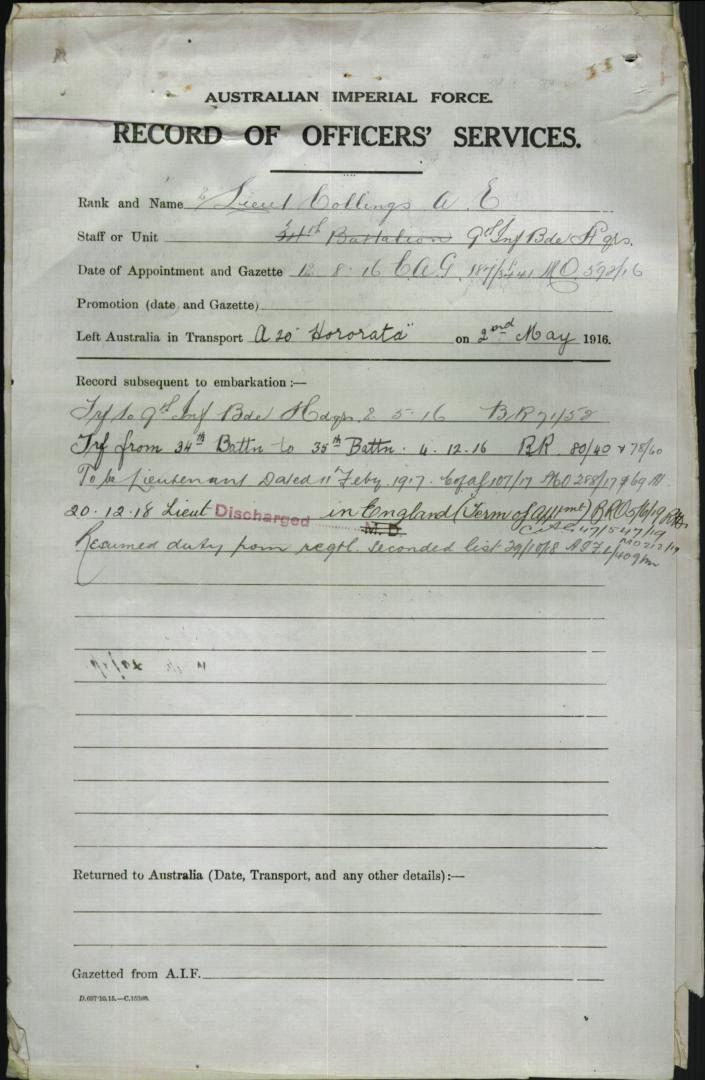 AUSTRALIAN IMPERIAL FORCE.
RECORD OF OFFICERS' SERVICES.
Rank and Name 2/ Lieut Collings A E
Staff or Unit 34th Battalion 9th Inf Bde Hqrs.
Date of Appointment and Gazette 12 8 16 C A G 187/3441 MO 598/16
Promotion (date and Gazette)
Left Australia in Transport A 20 "Hororata" on 2nd May 1916.
Record subsequent to embarkation :—
Trf to 9th Inf Bde Hdqrs 2 5 16 BR 71/52
Trf from 34th Battn to 35th Battn. 4. 12. 16 BR. 80/40 & 78/60
To be Lieutenant Dated 11 Feby 1917. 107/17 MO 288/17
20. 12. 18 Lieut Discharged in England (Term of appmt) BRO 5/6/19
M.D.
CAG 47/5 4/7/19
MO 212/19
Resumed duty from regtl. seconded list 29/10/18 AIF
Returned to Australia (Date, Transport, and any other details) :—
Gazetted from A.I.F.
D.697/10.15.—C.15398.